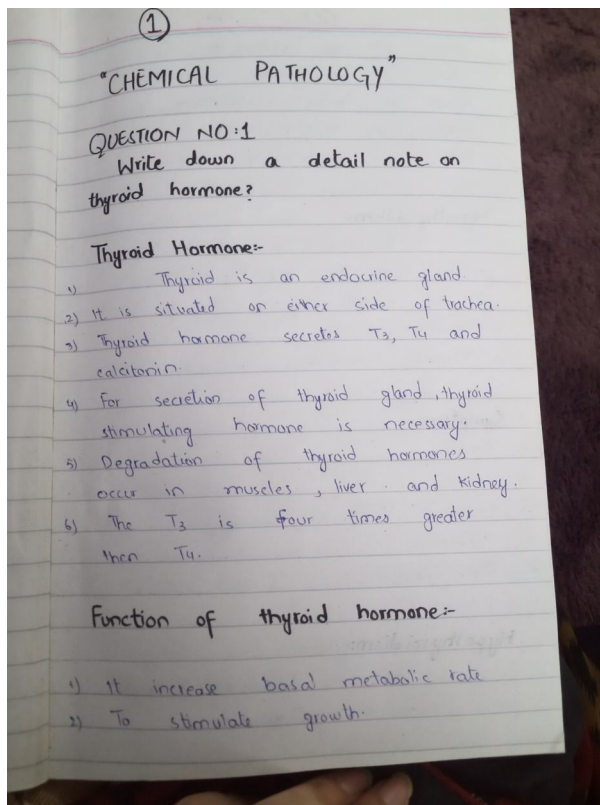 1
"CHEMICAL PATHOLOGY"
QUESTION NO:1
Write down a detail note on
thyroid hormone?
Thyroid Hormone:-
1) Thyroid is an endocrine gland.
2) It is situated on either side of trachea.
3) Thyroid hormone secretes T3, T4 and
calcitonin.
4) For secretion of thyroid gland, thyroid
stimulating hormone is necessary.
5) Degradation of thyroid hormones
occur in muscles, liver and kidney.
6) The T3 is four times greater
then T4.
Function of thyroid hormone:-
1) It increase basal metabolic rate
2) To stimulate growth.